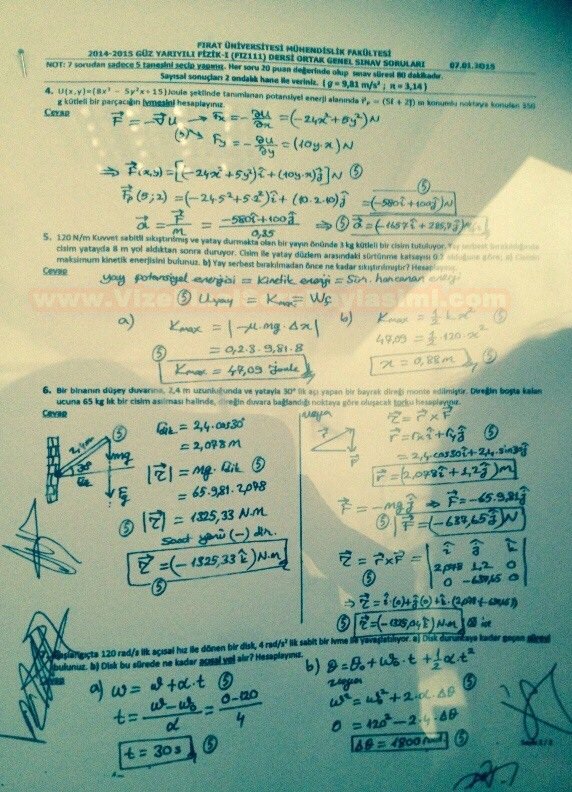 FIRAT ÜNİVERSİTESİ MÜHENDİSLİK FAKÜLTESİ
2014-2015 GÜZ YARIYILI FİZİK-I (FIZ111) DERSİ ORTAK GENEL SINAV SORULARI 07.01.2015
NOT: 7 sorudan sadece 5 tanesini seçip yapınız. Her soru 20 puan değerinde olup sınav süresi 80 dakikadır.
Sayısal sonuçları 2 ondalık hane ile veriniz. ( g = 9,81 m/s² ; π = 3,14 )
4. U(x,y)=(8x³ - 5y²x+15)Joule şeklinde tanımlanan potansiyel enerji alanında konumlu noktaya konulan 350
g kütleli bir parçacığın ivmesini hesaplayınız.
Cevap
F = -∇U → Fx = -∂U/∂x = (-24x²+5y²)N
Fy = -∂U/∂y = (10y.x)N
⇒ F(x,y) = [(-24x²+5y²)î + (10y.x)ĵ]N ⑤
Fp(5;2) = (-24.5²+5.2²)î + (10.2.10)ĵ = (-580î+100ĵ)N ⑤
a = F/m = (-580î+100ĵ)/0,35 ⇒ ⑤ a = (-1657î+285,7ĵ)
5. 120 N/m Kuvvet sabitli sıkıştırılmış ve yatay durmakta olan bir yayın önünde 3 kg kütleli bir cisim tutuluyor. Yay serbest bırakıldığında
cisim yatayda 8 m yol aldıktan sonra duruyor. Cisim ile yatay düzlem arasındaki sürtünme katsayısı 0,2 olduğuna göre; a) Cismin
maksimum kinetik enerjisini bulunuz. b) Yay serbest bırakılmadan önce ne kadar sıkıştırılmıştır? Hesaplayınız.
Cevap
yay potansiyel enerjisi = Kinetik enerji = Sür. harcanan enerji
⑤ Uyay = Kmax = Wf
a) Kmax = |-μ.mg.Δx|
⑤ = 0,2.3.9,81.8
Kmax = 47,09 joule
b) Kmax = ½ k.x²
47,09 = ½.120.x² ⑤
x = 0,88 m ⑤
6. Bir binanın düşey duvarına, 2,4 m uzunluğunda ve yatayla 30° lik açı yapan bir bayrak direği monte edilmiştir. Direğin boşta kalan
ucuna 65 kg lık bir cisim asılması halinde, direğin duvara bağlandığı noktaya göre oluşacak torku hesaplayınız.
Cevap
2,4m
30°
mg
Fg
= 2,4.cos30°
= 2,078 m
|τ| = mg. ⑤
= 65.9,81.2,078
⑤ |τ| = 1325,33 N.m
saat yönü (-) dir.
τ = (-1325,33 k̂)N.m
⑤
veya
τ = r x F
r = rxî + ryĵ ⑤
= 2,4cos30î + 2,4.sin30ĵ
r = (2,078î+1,2ĵ)m
F = -mgĵ ⇒ F = -65.9,81ĵ
⑤ F = (-637,65ĵ)N
τ = r x F = î ĵ k̂
2,078 1,2 0
0 -637,65 0
⑤
⇒ τ = î.(0)+ĵ(0)+k̂.(2,078
⑤ τ = (-1325,04k̂)N.m
7. Başlangıçta 120 rad/s lik açısal hız ile dönen bir disk, 4 rad/s² lik sabit bir ivme ile yavaşlatılıyor. a) Disk duruncaya kadar geçen süreyi
bulunuz. b) Disk bu sürede ne kadar açısal yol alır? Hesaplayınız.
a) ω = +α.t ⑤
t = (ω-ω₀)/α = (0-120)/4
t = 30s ⑤
b) θ = θ₀ + ω₀.t + ½αt²
veya
ω² = ω₀² + 2.α.Δθ
0 = 120² - 2.4.Δθ
Δθ = 1800 rad ⑤